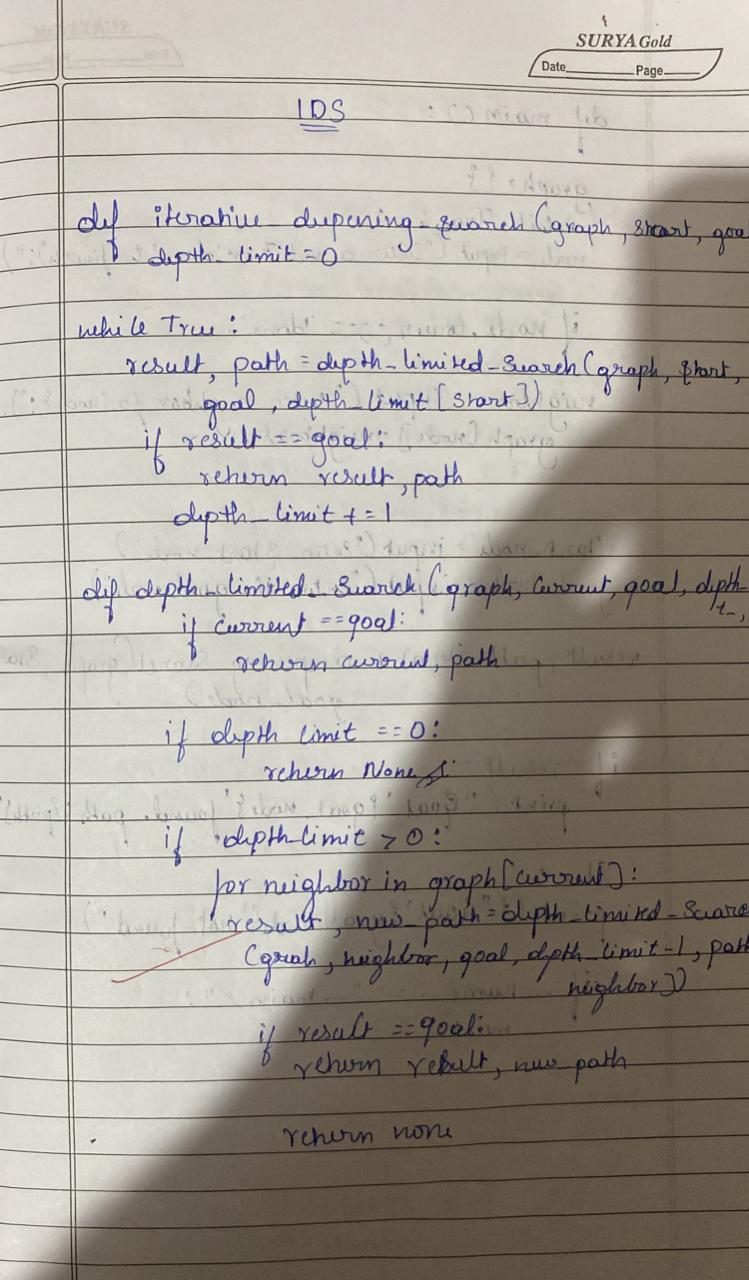 SURYA Gold
Date Page
IDS
def iterative_deepening_search (graph, start, goa
depth_limit = 0
while True:
result, path = depth_limited_Search (graph, start,
goal, depth_limit [start])
if result == goal:
return result, path
depth_limit += 1
def depth_limited_Search (graph, current, goal, depth_
if current == goal:
return current, path
if depth limit == 0:
return None
if depth_limit > 0:
for neighbor in graph [current]:
result, new_path = depth_limited_Searc
(grah, neighbor, goal, depth_limit-1, path
neighbor])
if result == goal:
return result, new path
return none